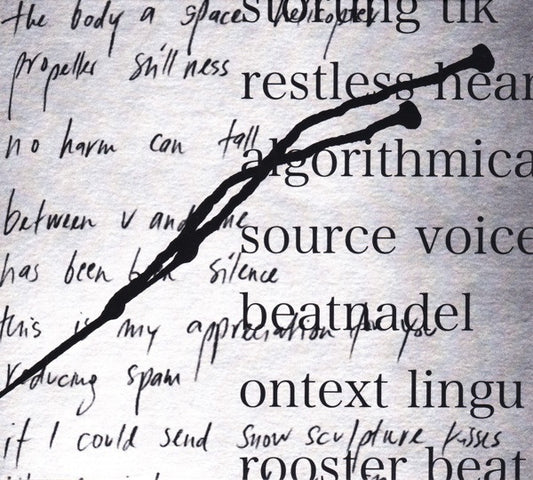 the body a space helicopter
propeller stillness
no harm can fall
between v and me
has been born silence
this is my appreciation for you
reducing spam
if I could send snow sculpture kisses
restless hear
algorithmica
source voice
beatnadel
ontext lingu
rooster beat